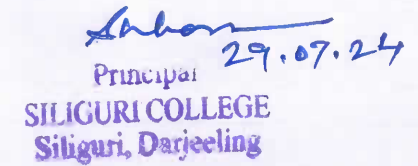 29.07.24
Principal
SILIGURI COLLEGE
Siliguri, Darjeeling